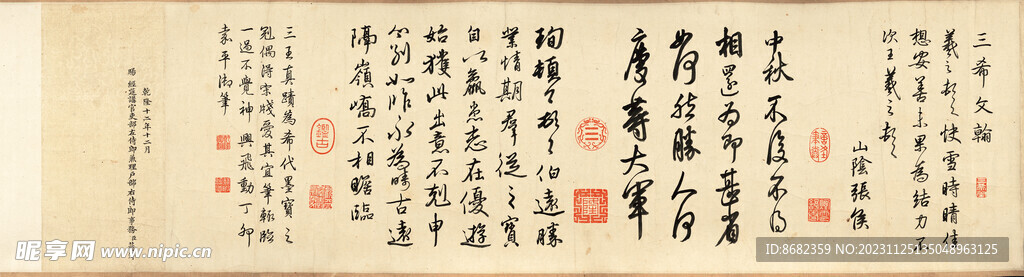 三希文翰
羲之頓首快雪時晴佳
想安善未果為結力不
次王羲之頓首
山陰張侯
中秋不復不得
相還為即甚省
如何然勝人何
慶等大軍
珣頓首頓首伯遠勝
業情期群從之寶
自以羸患志在優游
始獲此出意不剋申
分別如昨永為疇古遠
隔嶺嶠不相瞻臨
三王真蹟為希代墨寶之
冠偶得宋牋愛其宜筆輒臨
一過不覺神興飛動丁卯
長平御筆
乾隆十二年十二月
賜經筵講官吏部左侍郎兼理戶部右侍郎事務臣
昵享网 www.nipic.cn
ID:8682359 NO:20231125135048963125